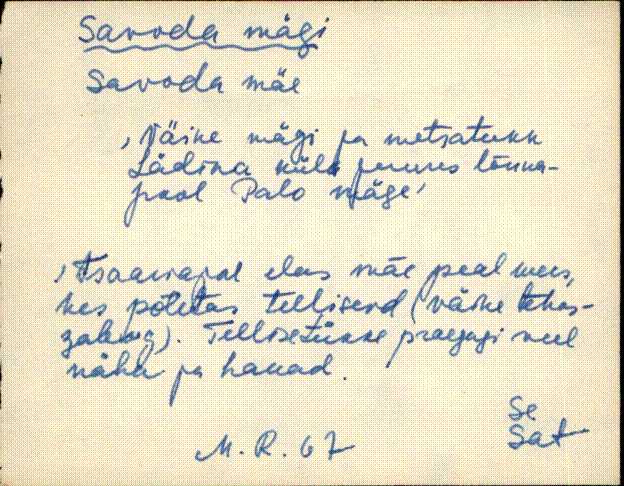 Savoda mägi
Savoda mäe
, Väike mägi ja metsatukk
Lädina küla juures lõuna-
pool Palo mäge'
, Tsaariajal elas mäe peal mees,
kes põletas telliseid (väike tehas-
Tellisetükke praegugi veel
näha ja hauad.
Se
Sat
M. R. 67